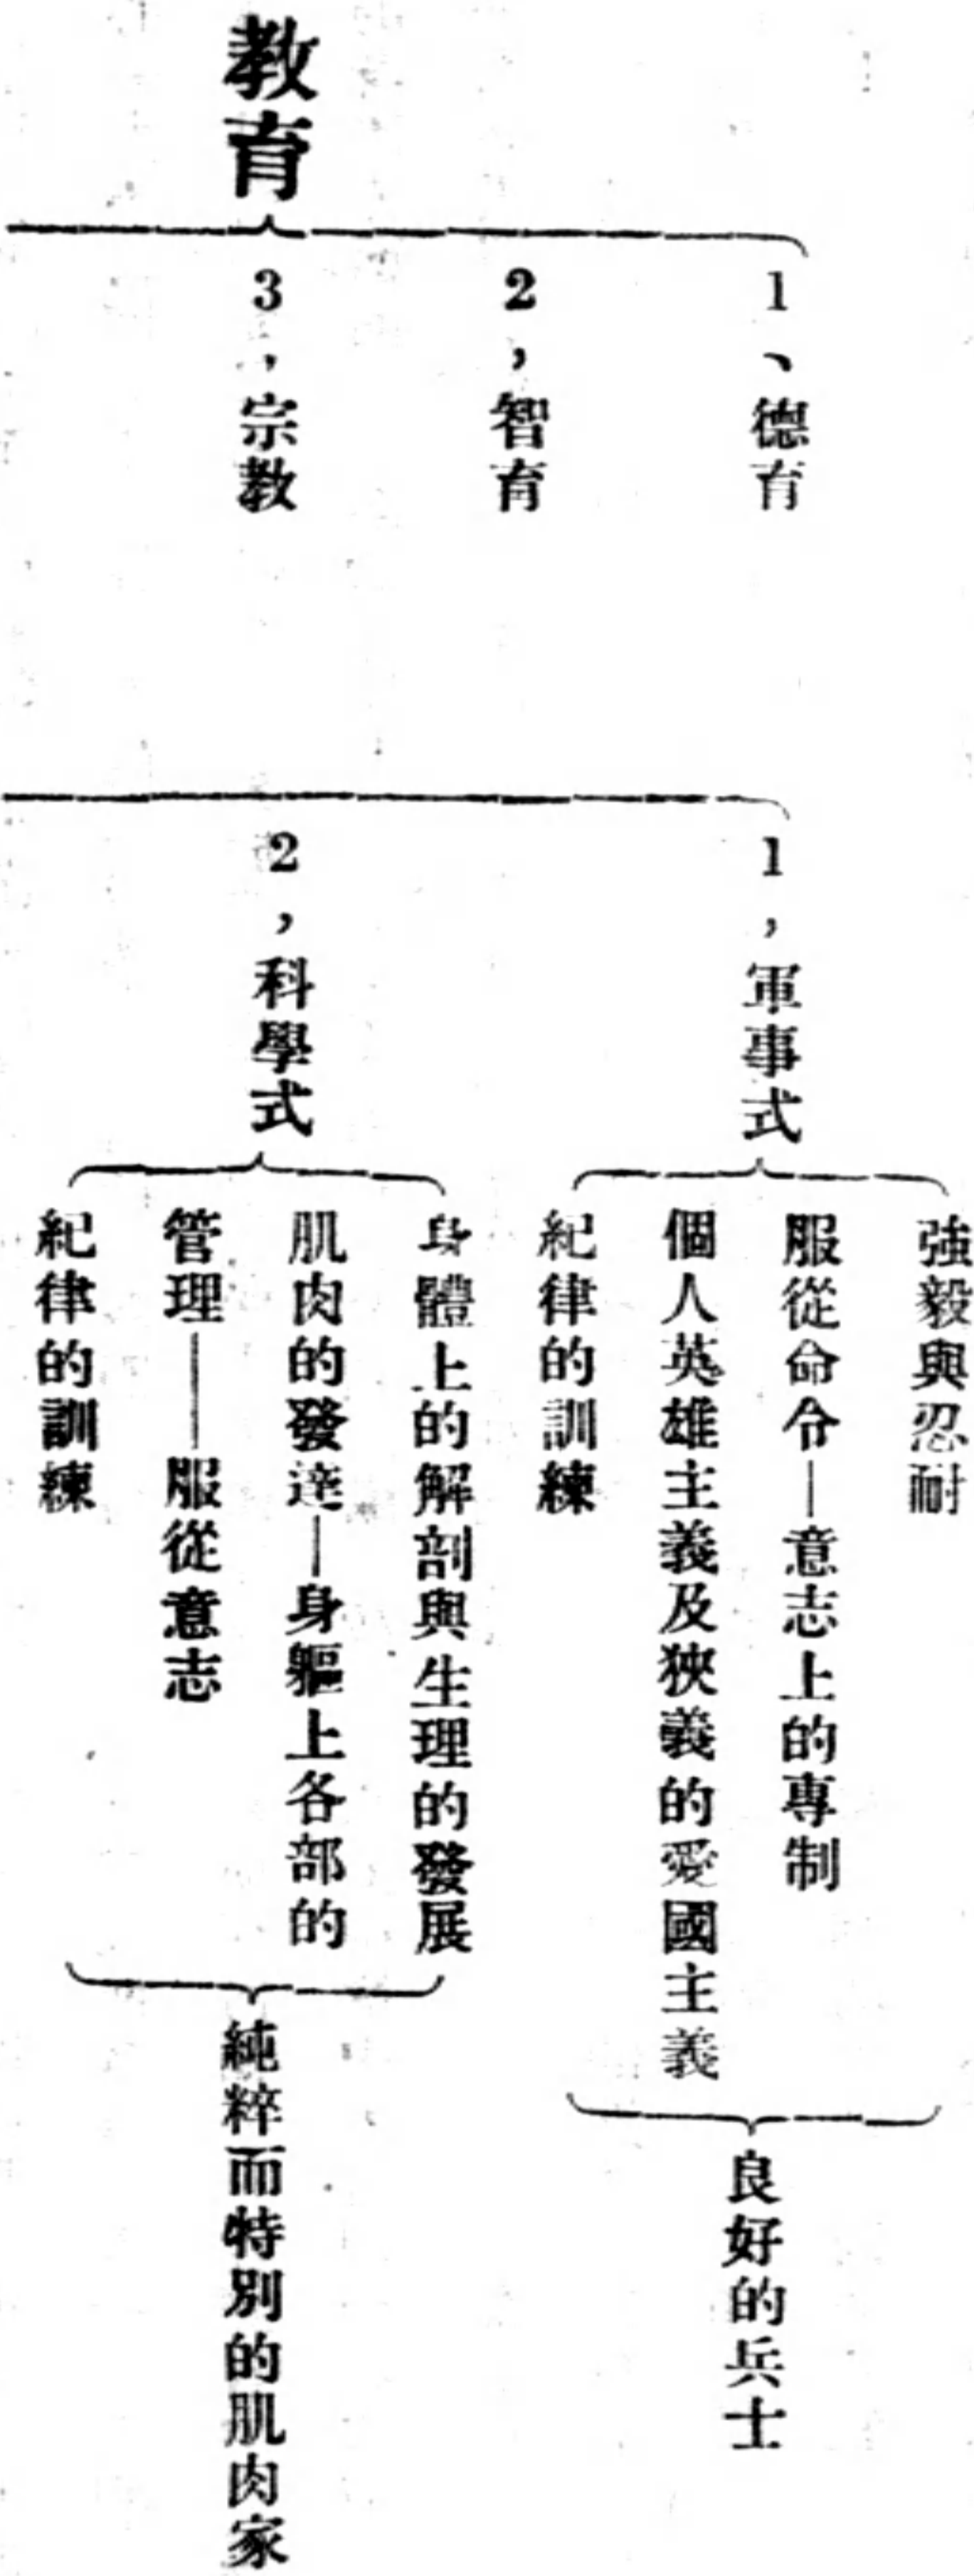 教育
1、德育
2，智育
3，宗教
1，軍事式
強毅與忍耐
服從命令—意志上的專制
個人英雄主義及狹義的愛國主義
紀律的訓練
良好的兵士
2，科學式
身體上的解剖與生理的發展
肌肉的發達—身軀上各部的
管理——服從意志
紀律的訓練
純粹而特別的肌肉家